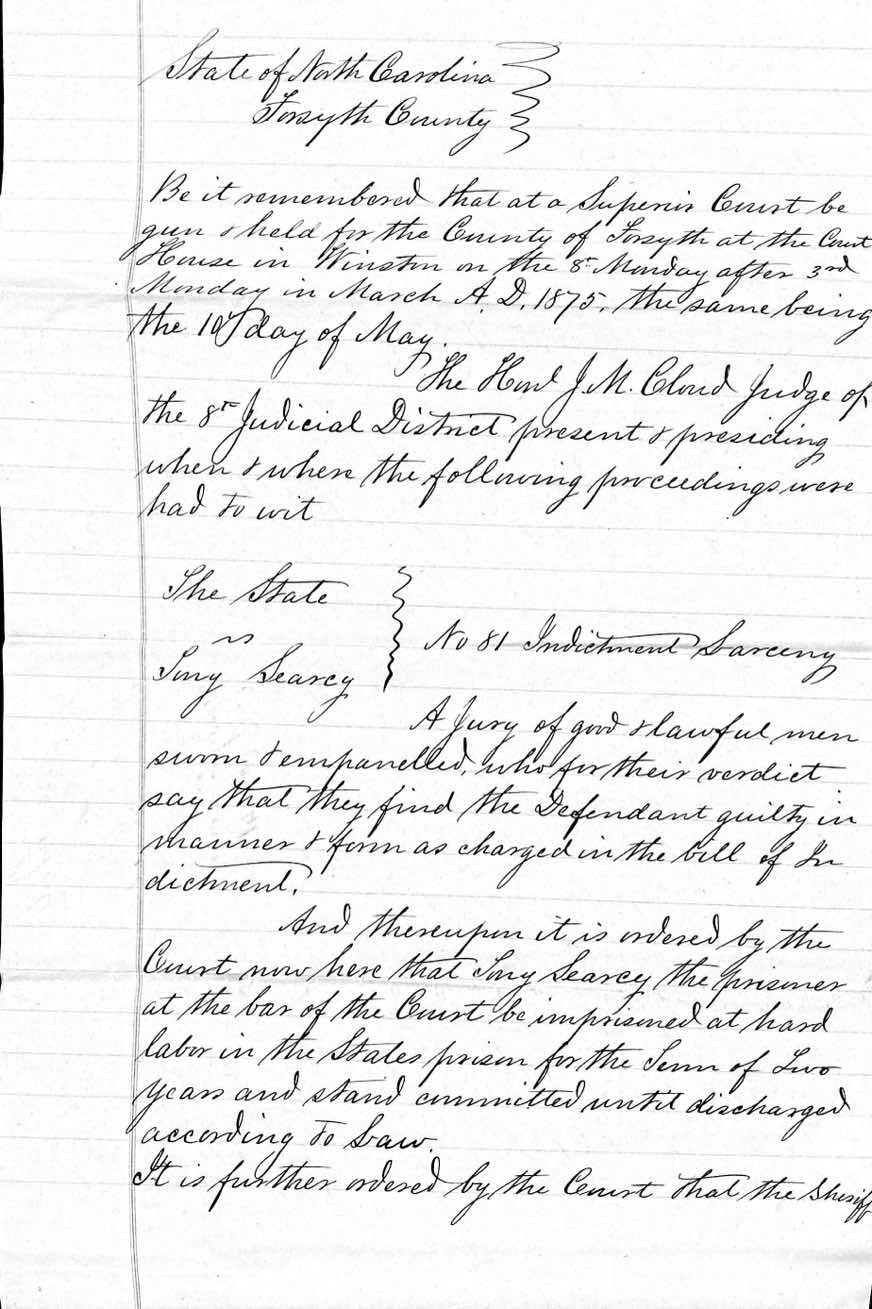 State of North Carolina
Forsyth County
Be it remembered that at a Superior Court be
gun & held for the County of Forsyth at the Court
House in Winston on the 8th Monday after 3rd
Monday in March A.D. 1875. the same being
the 10th day of May.
The Honl J.M. Cloud Judge of
the 8th Judicial District present & presiding
when & where the following proceedings were
had to wit
The State
vs
Tony Searcy
No 81 Indictment Larceny
A Jury of good & lawful men
sworn & empanelled, who for their verdict
say that they find the Defendant guilty in
manner & form as charged in the bill of In
dictment.
And thereupon it is ordered by the
Court now here that Tony Searcy the prisoner
at the bar of the Court be imprisoned at hard
labor in the States prison for the Term of Two
years and stand committed until discharged
according to Law.
It is further ordered by the Court that the Sheriff